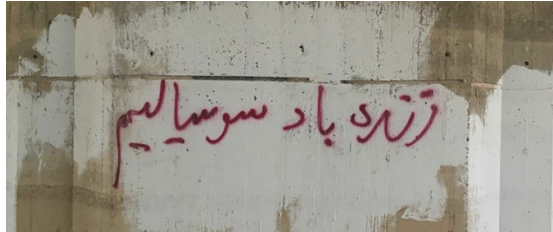 زنده باد سوسیالیسم